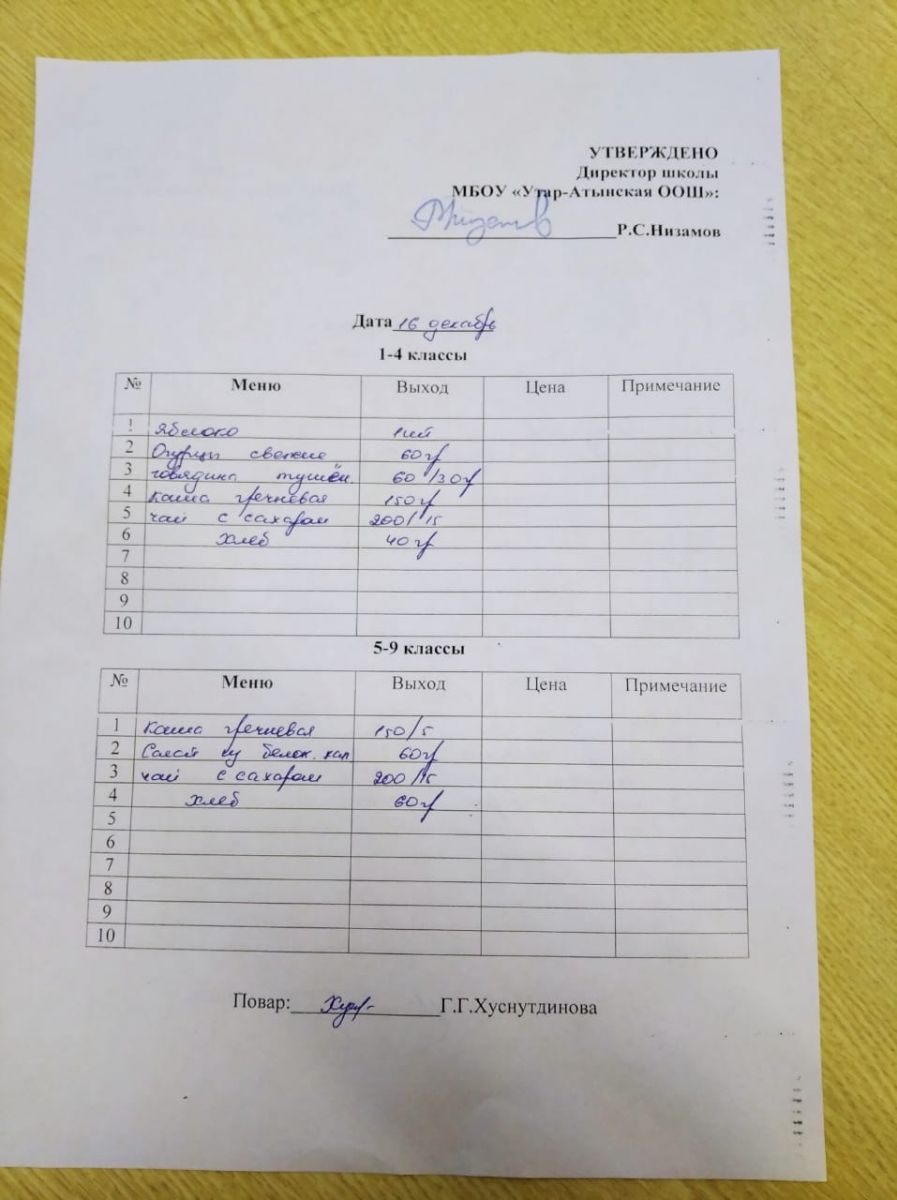 УТВЕРЖДЕНО
Директор школы
МБОУ «Утар-Атынская ООШ»:
Р.С.Низамов
Дата 16 декабрь
1-4 классы
№ Меню Выход Цена Примечание
1 Яблоко 1шт
2 Огурцы свежие 60гр
3 говядина тушён. 60/30гр
4 каша гречневая 150гр
5 чай с сахаром 200/15
6 хлеб 40гр
7
8
9
10
5-9 классы
№ Меню Выход Цена Примечание
1 Каша гречневая 150/5
2 Салат из белок. кап 60гр
3 чай с сахаром 200/15
4 хлеб 60гр
5
6
7
8
9
10
Повар: Г.Г.Хуснутдинова